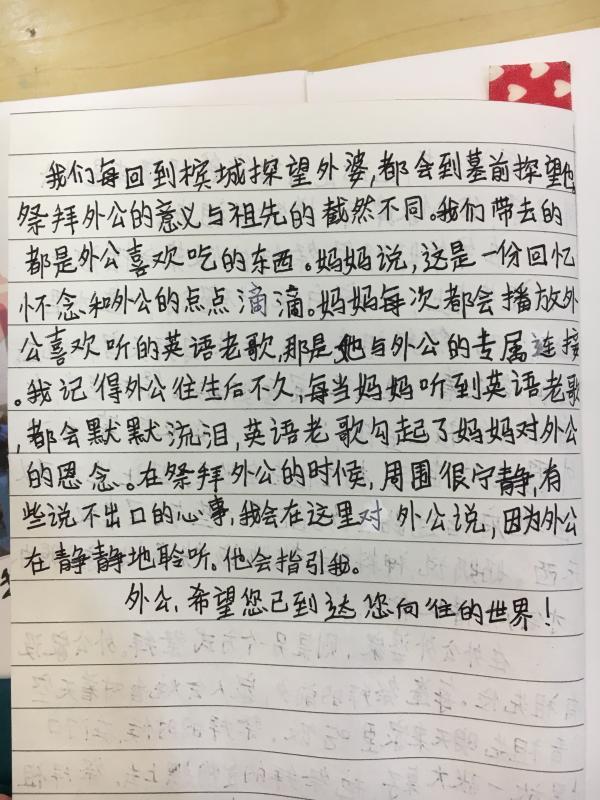 我们每回到槟城探望外婆,都会到墓前探望他
祭拜外公的意义与祖先的截然不同。我们带去的
都是外公喜欢吃的东西。妈妈说,这是一份回忆
怀念和外公的点点滴滴。妈妈每次都会播放外
公喜欢听的英语老歌,那是她与外公的专属连接
。我记得外公往生后不久,每当妈妈听到英语老歌
,都会默默流泪,英语老歌勾起了妈妈对外公
的恩念。在祭拜外公的时候,周围很宁静,有
些说不出口的心事,我会在这里对外公说,因为外公
在静静地聆听。他会指引我。
外公,希望您已到达您向往的世界!